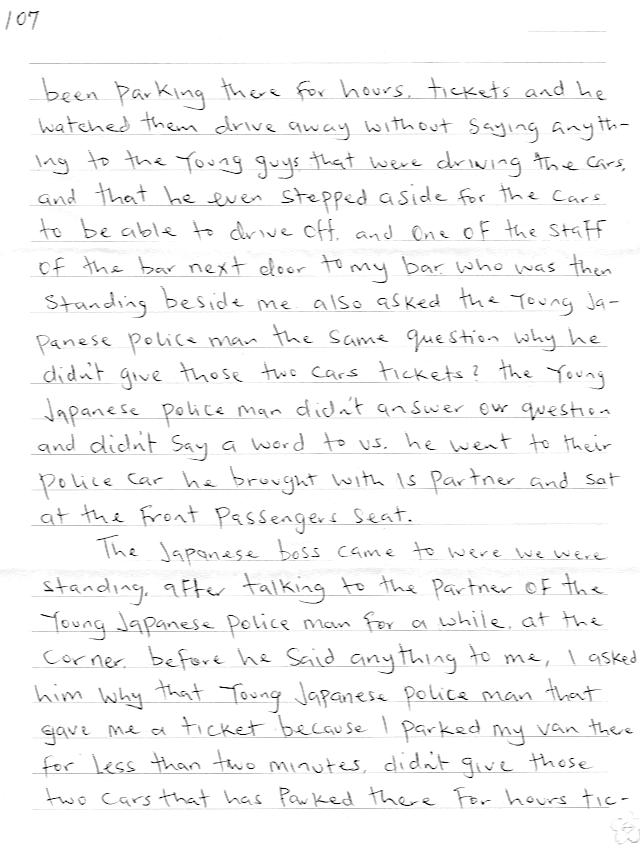 107
been parking there for hours. tickets and he
watched them drive away without saying anyth-
ing to the Young guys that were driving the cars,
and that he even stepped aside for the cars
to be able to drive off. and one of the staff
of the bar next door to my bar who was then
standing beside me also asked the Young Ja-
panese police man the same question why he
didn't give those two cars tickets? the Young
Japanese police man didn't answer our question
and didn't say a word to us. he went to their
police car he brought with is partner and sat
at the front passengers seat.
The Japanese boss came to were we were
standing, after talking to the partner of the
Young Japanese police man for a while. at the
corner. before he said anything to me, I asked
him why that Young Japanese police man that
gave me a ticket because I parked my van there
for less than two minutes, didn't give those
two cars that has parked there for hours tic-